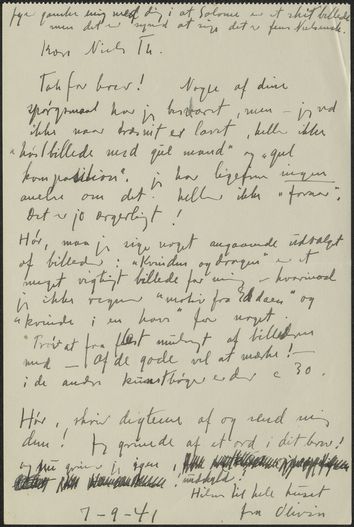 jeg ganske enig med dig i at Salome er et skidt billede
men det er synd at sige det er fem Nielsensk.
Kære Niels Th.
Tak for brev! Nogle af dine
spørgsmaal har jeg besvaret, men – jeg ved
ikke naar træsnit er lavet, heller ikke
"høstbillede med gul mand" og "gul
komposition". jeg har ligefrem ingen
anelse om det. heller ikke "foraar".
Det er jo ærgerligt!
Hør, maa jeg sige noget angaaende udvalget
af billeder: "Kvinden og dragen" er et
meget vigtigt billede for mig – hvorimod
jeg ikke regner "motiv fra Eddaen" og
"kvinde i en have" for noget.
Prøv at faa flest muligt af billederne
med – af de gode vel at mærke! –
i de andre kunstbøger er der c 30.
Hør, skriv digtene af og send mig
dem! Jeg græmmede af et ord i dit brev!
og nu igen, undskyld!
Hilsen til hele huset
7-9-41 fra Olivia